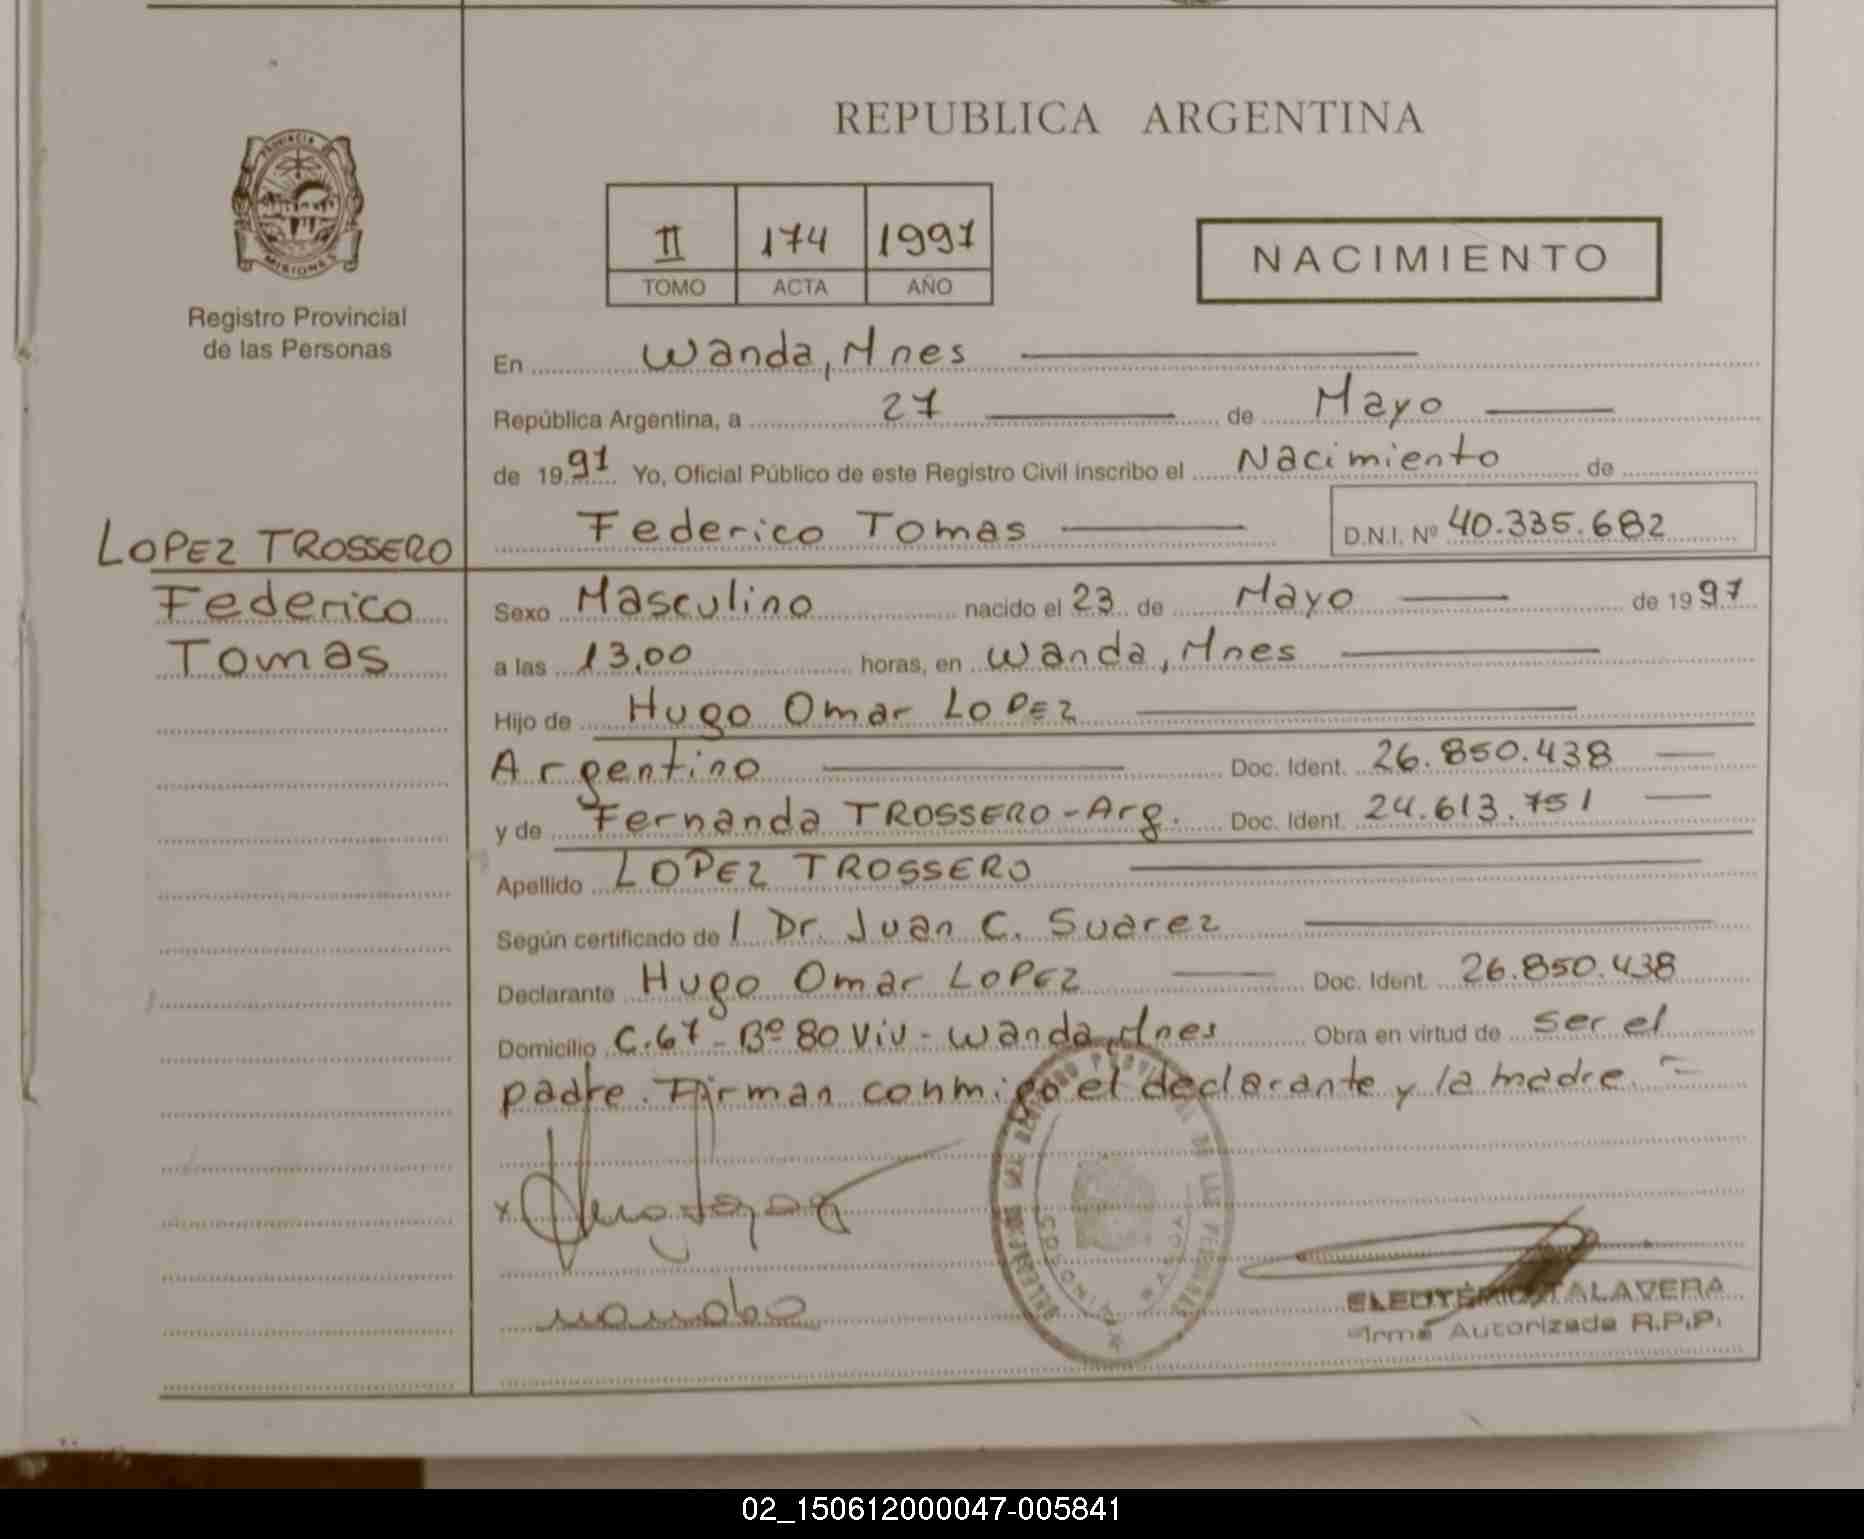 REPUBLICA ARGENTINA
PROVINCIA DE
MISIONES
Registro Provincial
de las Personas
II 174 1997
TOMO ACTA AÑO
NACIMIENTO
En Wanda, Mnes
República Argentina, a 27 de Mayo
de 1997 Yo, Oficial Público de este Registro Civil inscribo el Nacimiento de
Federico Tomas D.N.I. Nº 40.335.682
LOPEZ TROSSERO
Federico
Tomas
Sexo Masculino nacido el 23 de Mayo de 1997
a las 13,00 horas, en Wanda, Mnes
Hijo de Hugo Omar LOPEZ
Argentino Doc. Ident. 26.850.438
y de Fernanda TROSSERO - Arg. Doc. Ident. 24.613.751
Apellido LOPEZ TROSSERO
Según certificado de / Dr. Juan C. Suarez
Declarante Hugo Omar LOPEZ Doc. Ident. 26.850.438
Domicilio C.67 - Bº 80 Viv - Wanda, Mnes Obra en virtud de ser el
padre. Firman conmigo el declarante y la madre. =
WANDA
ELEUTERIO TALAVERA
Firma Autorizada R.P.P.
02_150612000047-005841